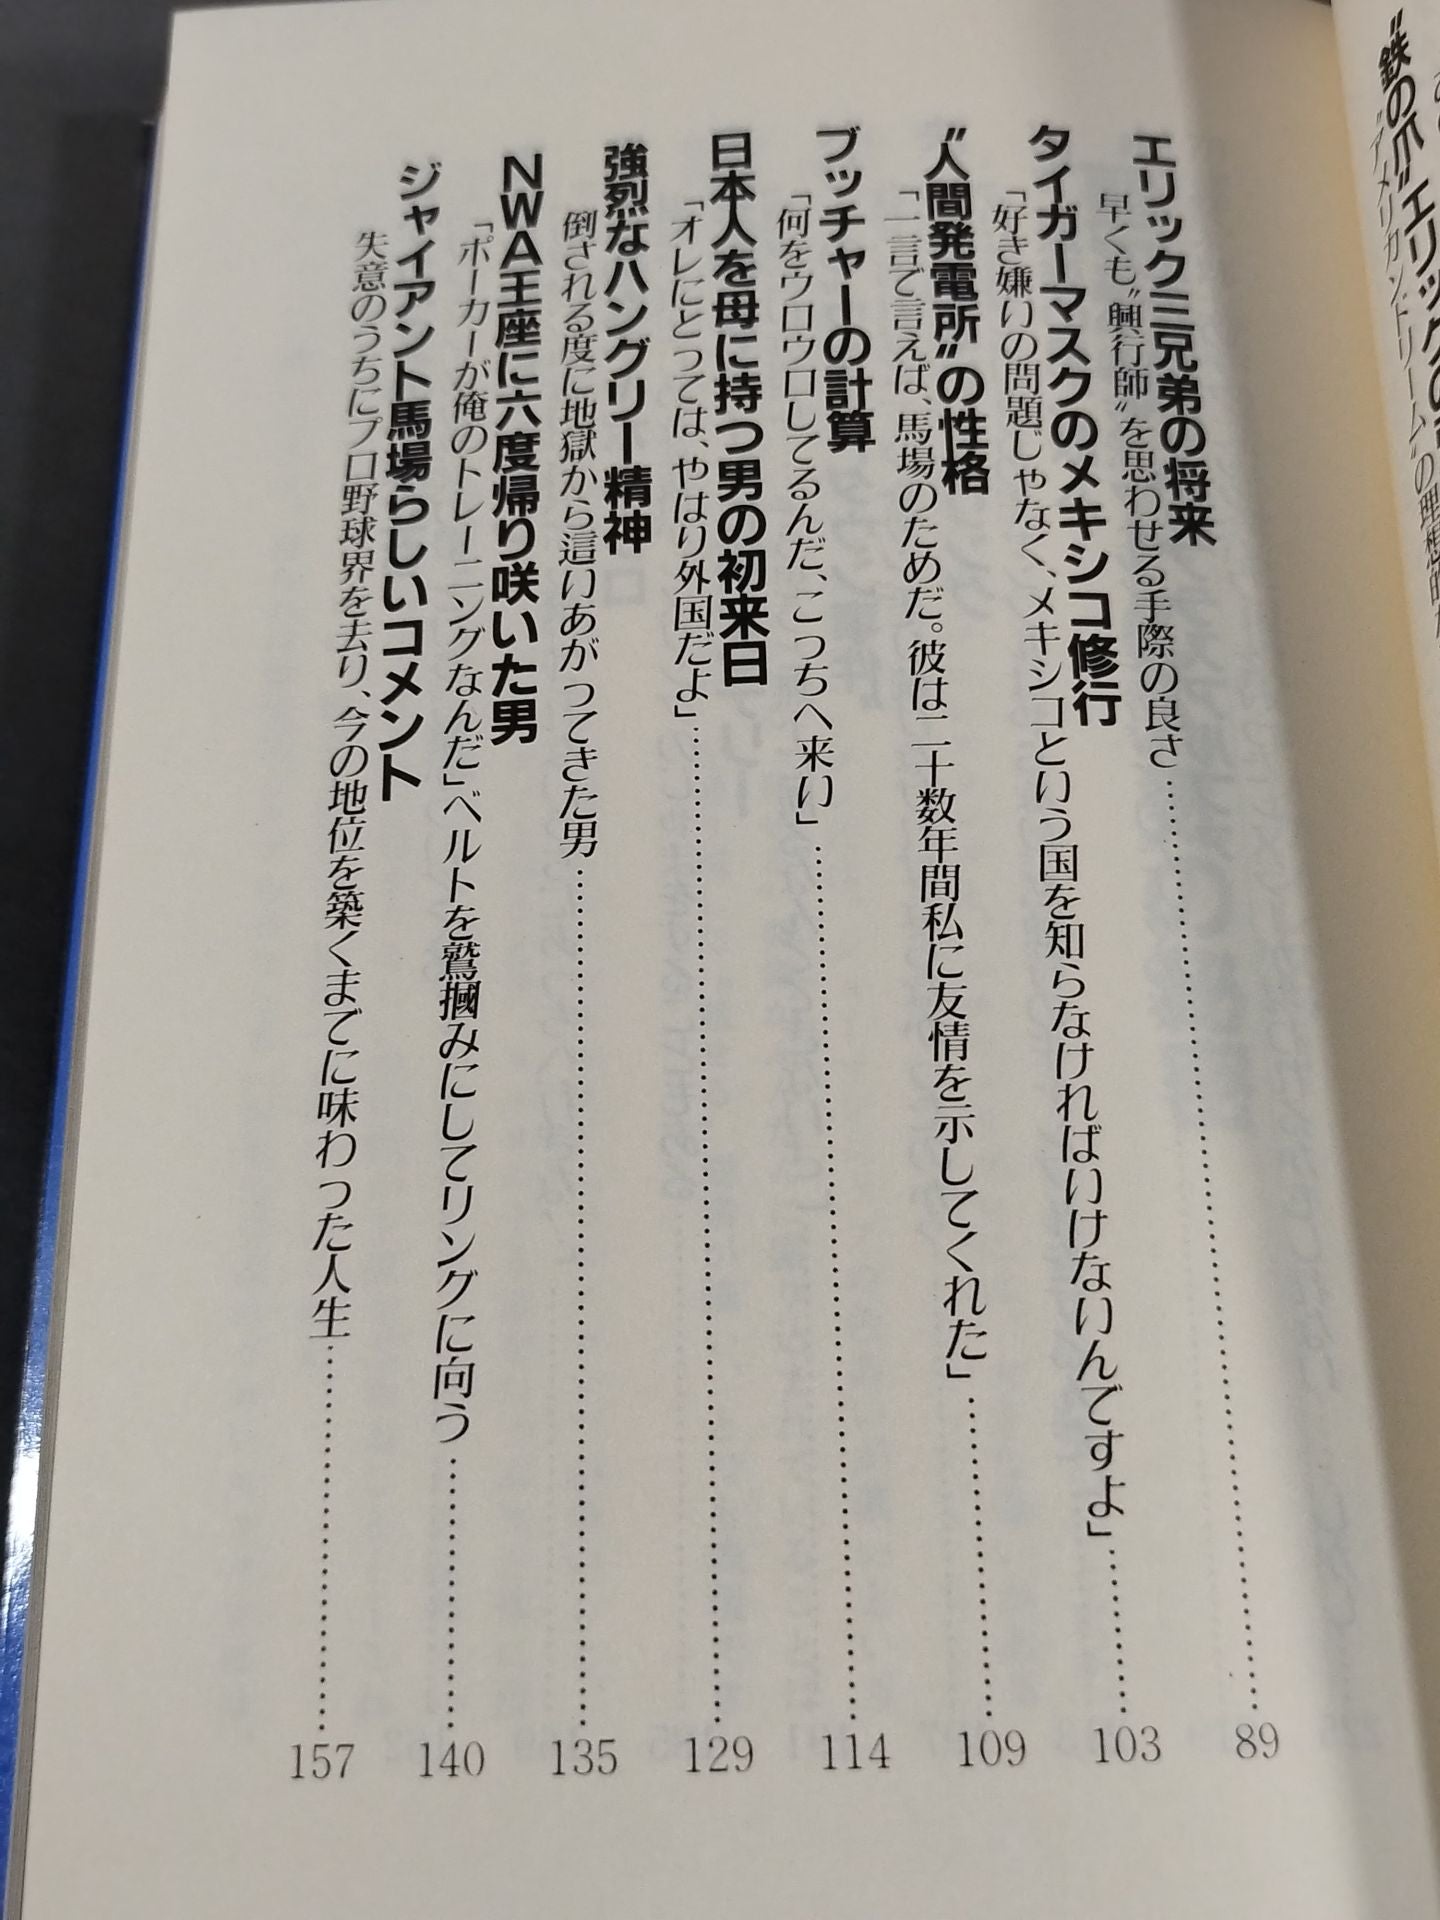 “鉄の爪”エリックの
“アメリカンドリーム”の理想的な
エリック三兄弟の将来
早くも“興行師”を思わせる手際の良さ……………89
タイガーマスクのメキシコ修行
「好き嫌いの問題じゃなく、メキシコという国を知らなければいけないんですよ」……………103
“人間発電所”の性格
「一言で言えば、馬場のためだ。彼は二十数年間私に友情を示してくれた」……………109
ブッチャーの計算
「何をウロウロしてるんだ、こっちへ来い」……………114
日本人を母に持つ男の初来日
「オレにとっては、やはり外国だよ」……………129
強烈なハングリー精神
倒される度に地獄から這いあがってきた男……………135
NWA王座に六度帰り咲いた男
「ポーカーが俺のトレーニングなんだ」ベルトを鷲摑みにしてリングに向う……………140
ジャイアント馬場らしいコメント
失意のうちにプロ野球界を去り、今の地位を築くまでに味わった人生……………157